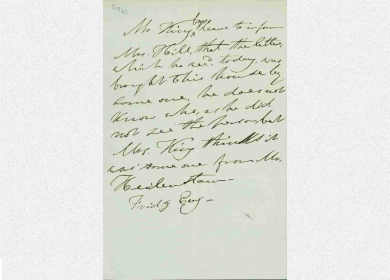 Mr. King begs leave to inform
Mrs. Hill, that the letter,
which he recd. today, was
brought to his house by
some one, he does not
know who, as he did
not see the person, but
Mrs. King thinks it
was some one from Mr.
Heidenstam—
Friday Evg—